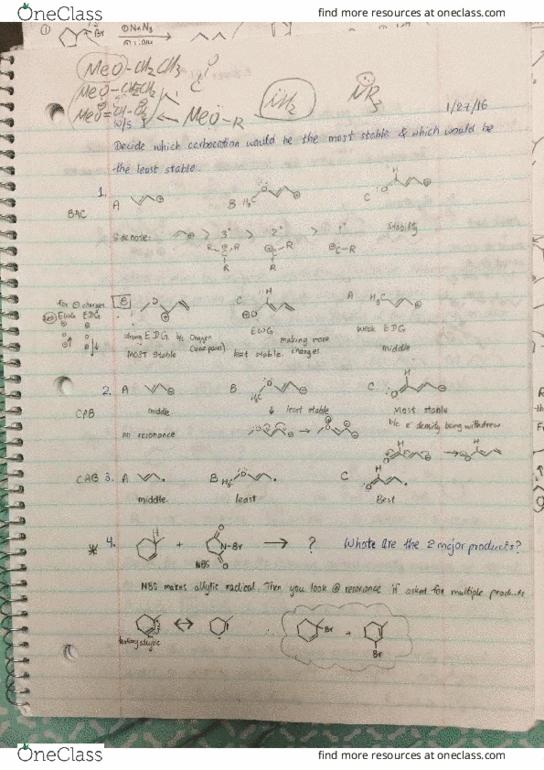 OneClass
find more resources at oneclass.com
① Br ① NaN₃
MeO-CH₂CH₃
MeO-CH₂CH₂
MeO=CH-CH₂ MeO-R NR₃
1/27/16
W/S 1
Decide which carbocation would be the most stable & which would be
the least stable.
1. A B. H₃C C
BAC
Side note: > 3° > 2° > 1° stability
R-C-R C-R C-R
R R
for ⊕ charges B C H A H₃C
EWG EDG
strong EDG b/c Oxygen EWG making more weak EDG
(lone pairs) charges
MOST Stable least stable middle
2. A B. C. H
CAB middle least stable Most stable
no resonance b/c e⁻ density being withdrew
CAB 3. A B H₃C C H
middle least Best
* 4. H + N-Br → ? Whate are the 2 major products?
NBS
NBS makes allylic radical. Then you look @ resonance if asked for multiple products
↔ Br +
tertiary allylic Br
OneClass
find more resources at oneclass.com